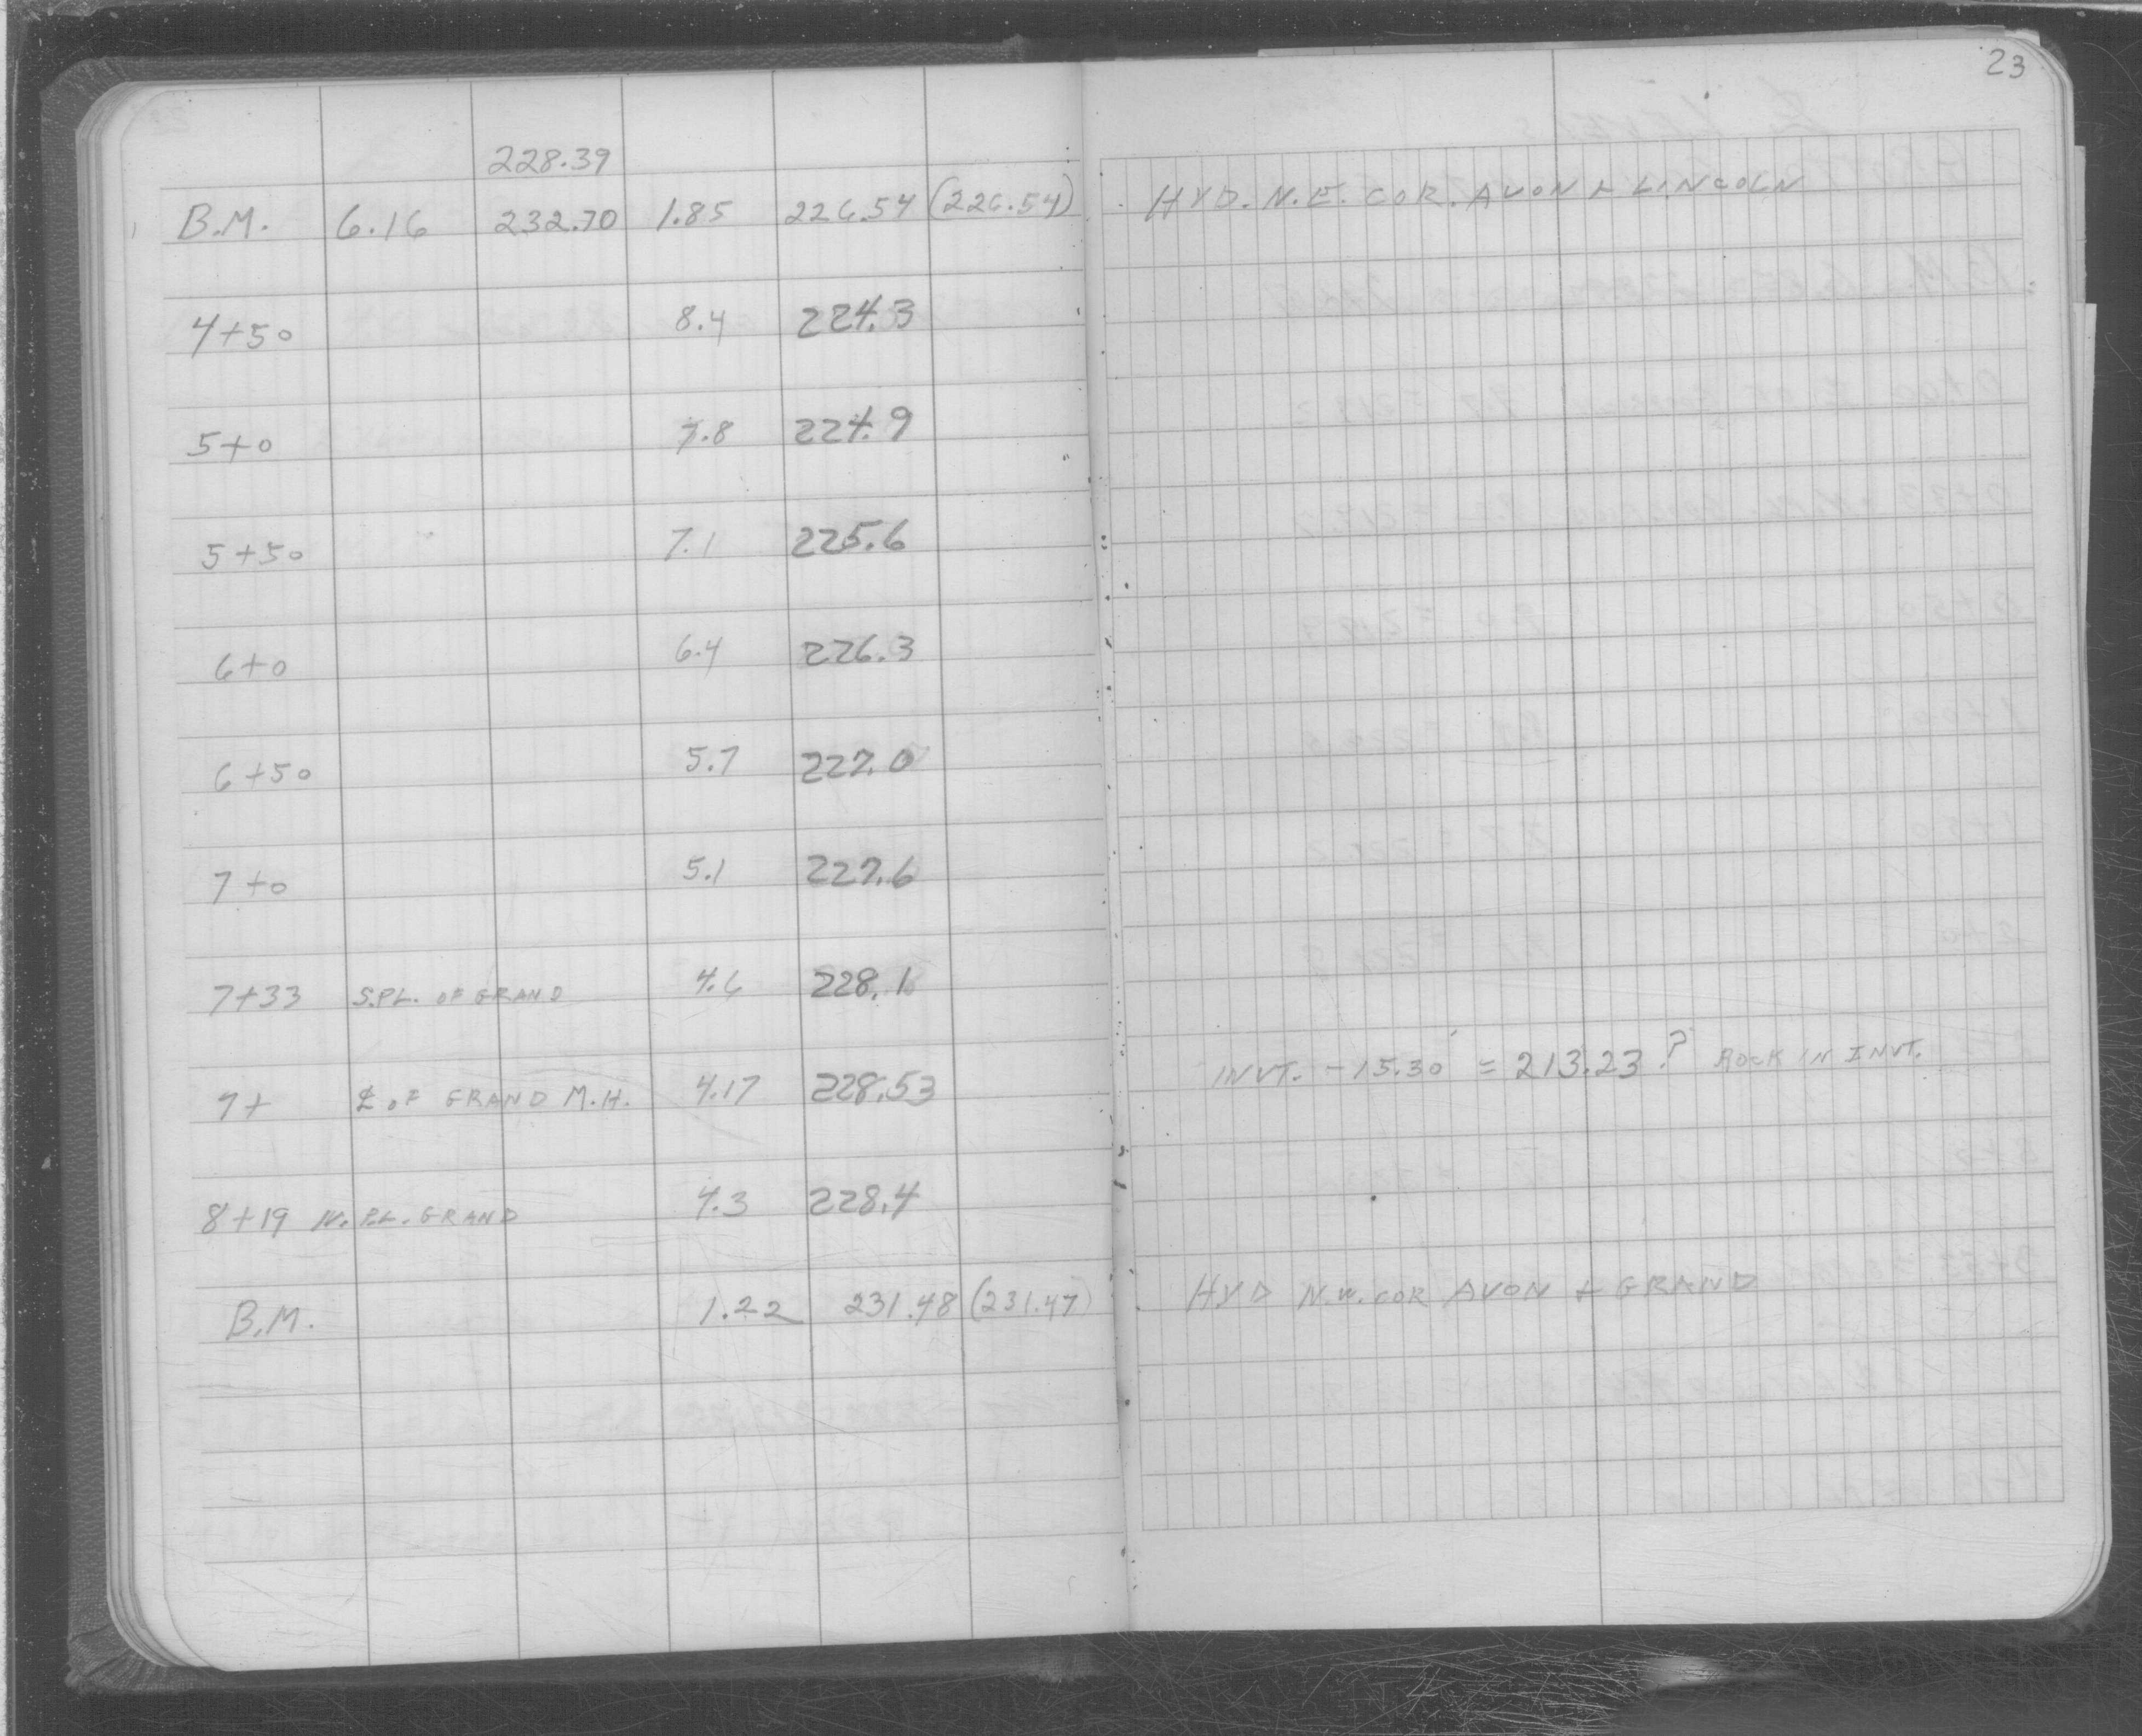 23
228.39
B.M. 6.16 232.70 1.85 226.54 (226.54) HYD. N.E. COR. AVON & LINCOLN
4+50 8.4 224.3
5+0 7.8 224.9
5+50 7.1 225.6
6+0 6.4 226.3
6+50 5.7 227.0
7+0 5.1 227.6
7+33 S.PL. OF GRAND 4.6 228.1
7+ ℄ OF GRAND M.H. 4.17 228.53 INVT. -15.30' = 213.23? ROCK IN INVT.
8+19 N. P.L. GRAND 4.3 228.4
B.M. 1.22 231.48 (231.47) HYD N.W. COR AVON & GRAND